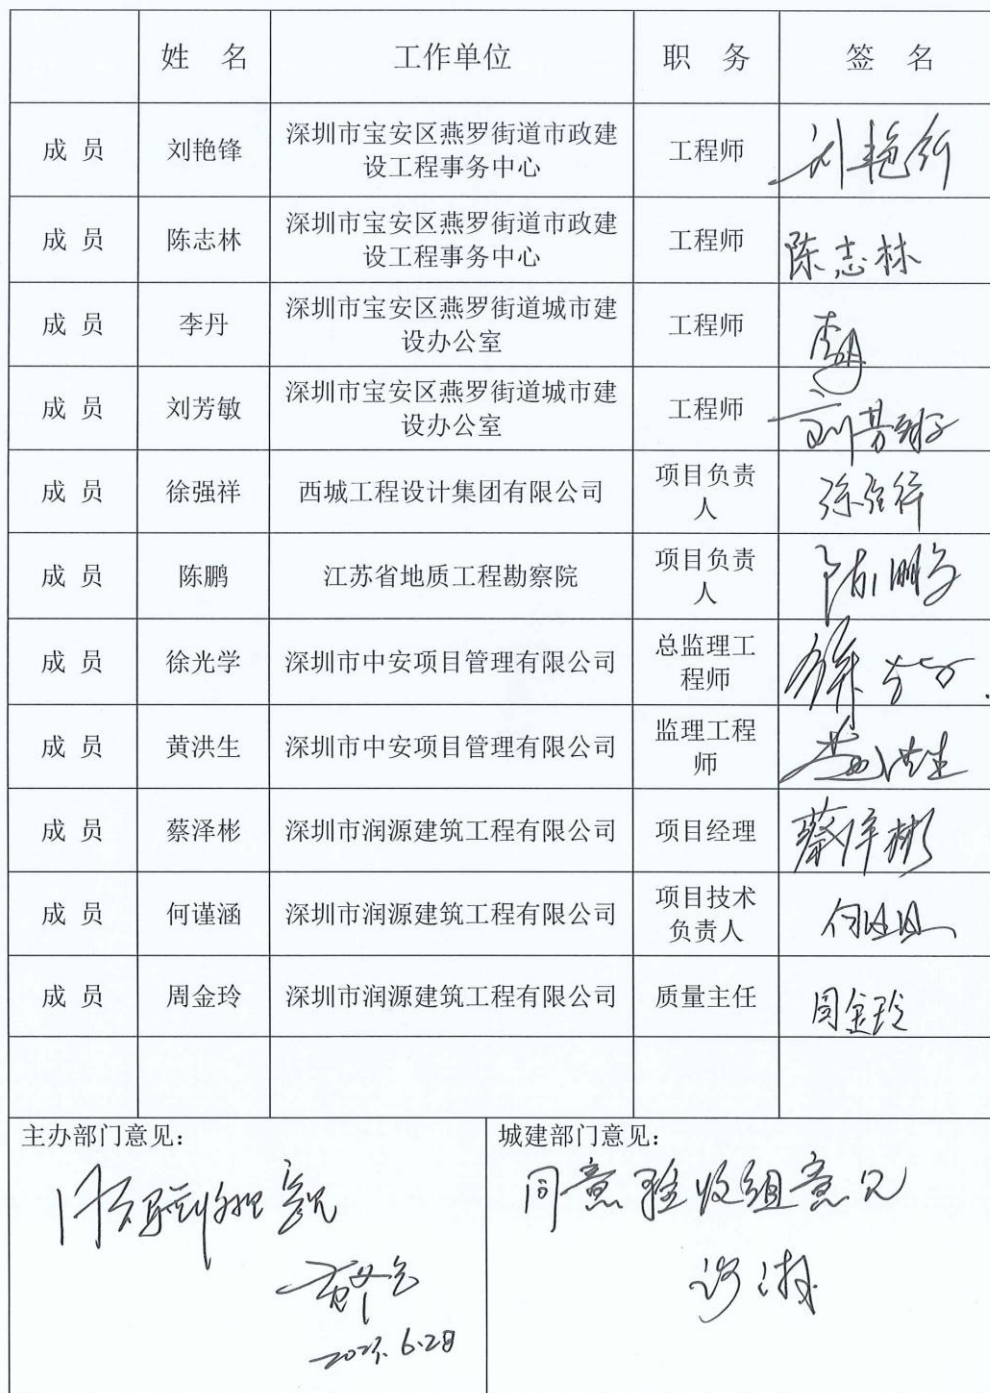 姓 名 工作单位 职 务 签 名
成 员 刘艳锋 深圳市宝安区燕罗街道市政建 工程师 刘艳锋
设工程事务中心
成 员 陈志林 深圳市宝安区燕罗街道市政建 工程师 陈志林
设工程事务中心
成 员 李丹 深圳市宝安区燕罗街道城市建 工程师 李丹
设办公室
成 员 刘芳敏 深圳市宝安区燕罗街道城市建 工程师 刘芳敏
设办公室
成 员 徐强祥 西城工程设计集团有限公司 项目负责 徐强祥
人
成 员 陈鹏 江苏省地质工程勘察院 项目负责 陈鹏
人
成 员 徐光学 深圳市中安项目管理有限公司 总监理工 徐
程师
成 员 黄洪生 深圳市中安项目管理有限公司 监理工程 黄洪生
师
成 员 蔡泽彬 深圳市润源建筑工程有限公司 项目经理 蔡泽彬
成 员 何谨涵 深圳市润源建筑工程有限公司 项目技术 何
负责人
成 员 周金玲 深圳市润源建筑工程有限公司 质量主任 周金玲
主办部门意见: 城建部门意见:
同意验收组意见 同意验收组意见
6.28